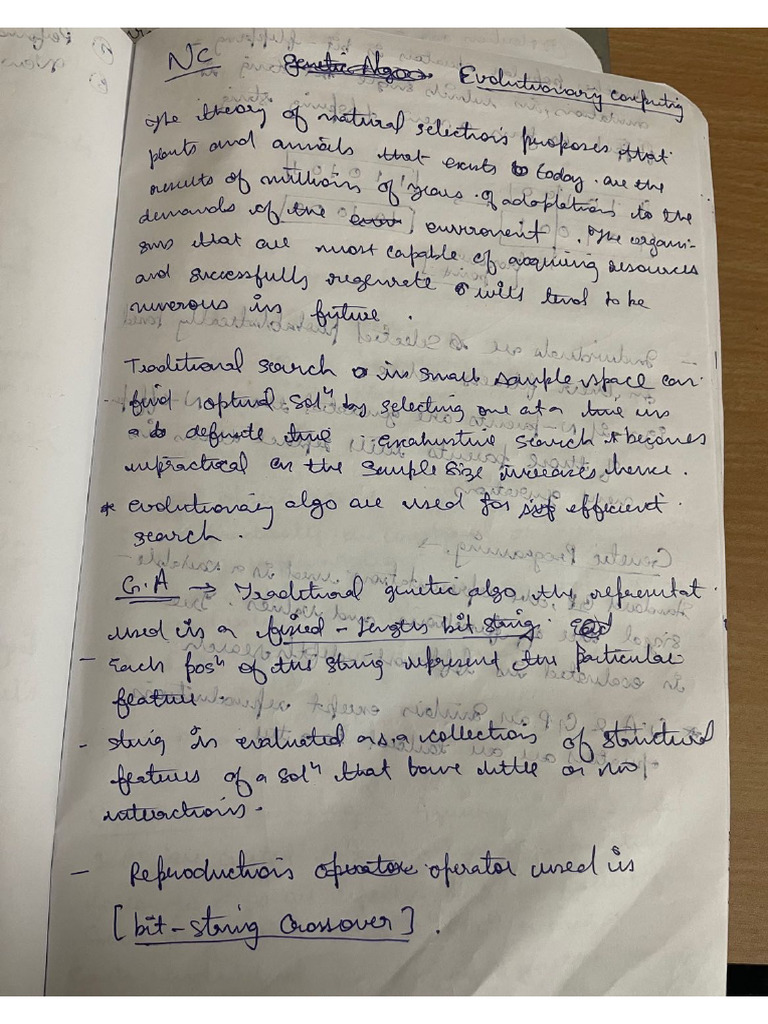 NC Genetic Algo Evolutionary computing
The theory of natural selection proposes that
plants and animals that exists today are the
results of millions of years of adaptations to the
demands of the environment. The organi-
sms that are most capable of acquiring resources
and successfully regenrate will tend to be
numerous in future.
Traditional search in small sample space can
find optimal Solⁿ by selecting one at a time in
a definite time Exahustive search it becomes
impractical as the Sample Size increases hence.
* evolutionary algo are used for efficient
search.
G.A → Traditional genetic algo the representat
used is a fixed - length bit string.
- Each posⁿ of the string represent the particular
feature
- string is evaluated as a collection of structural
features of a solⁿ that have little or no
interactions.
- Reproduction operator used is
[bit-string Crossover].